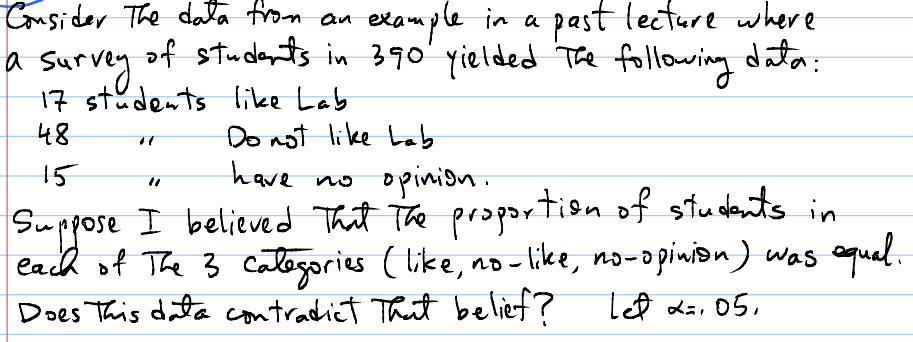 Consider The data from an example in a past lecture where
a survey of students in 390 yielded The following data:
17 students like Lab
48 " Do not like Lab
15 " have no opinion.
Suppose I believed That The proportion of students in
each of The 3 categories (like, no-like, no-opinion) was equal.
Does This data contradict That belief? Let α=.05.